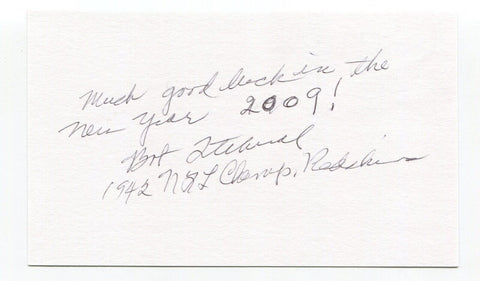 Much good luck in the
New Year 2009!
Bob Titchenal
1942 NFL Champ. Redskins